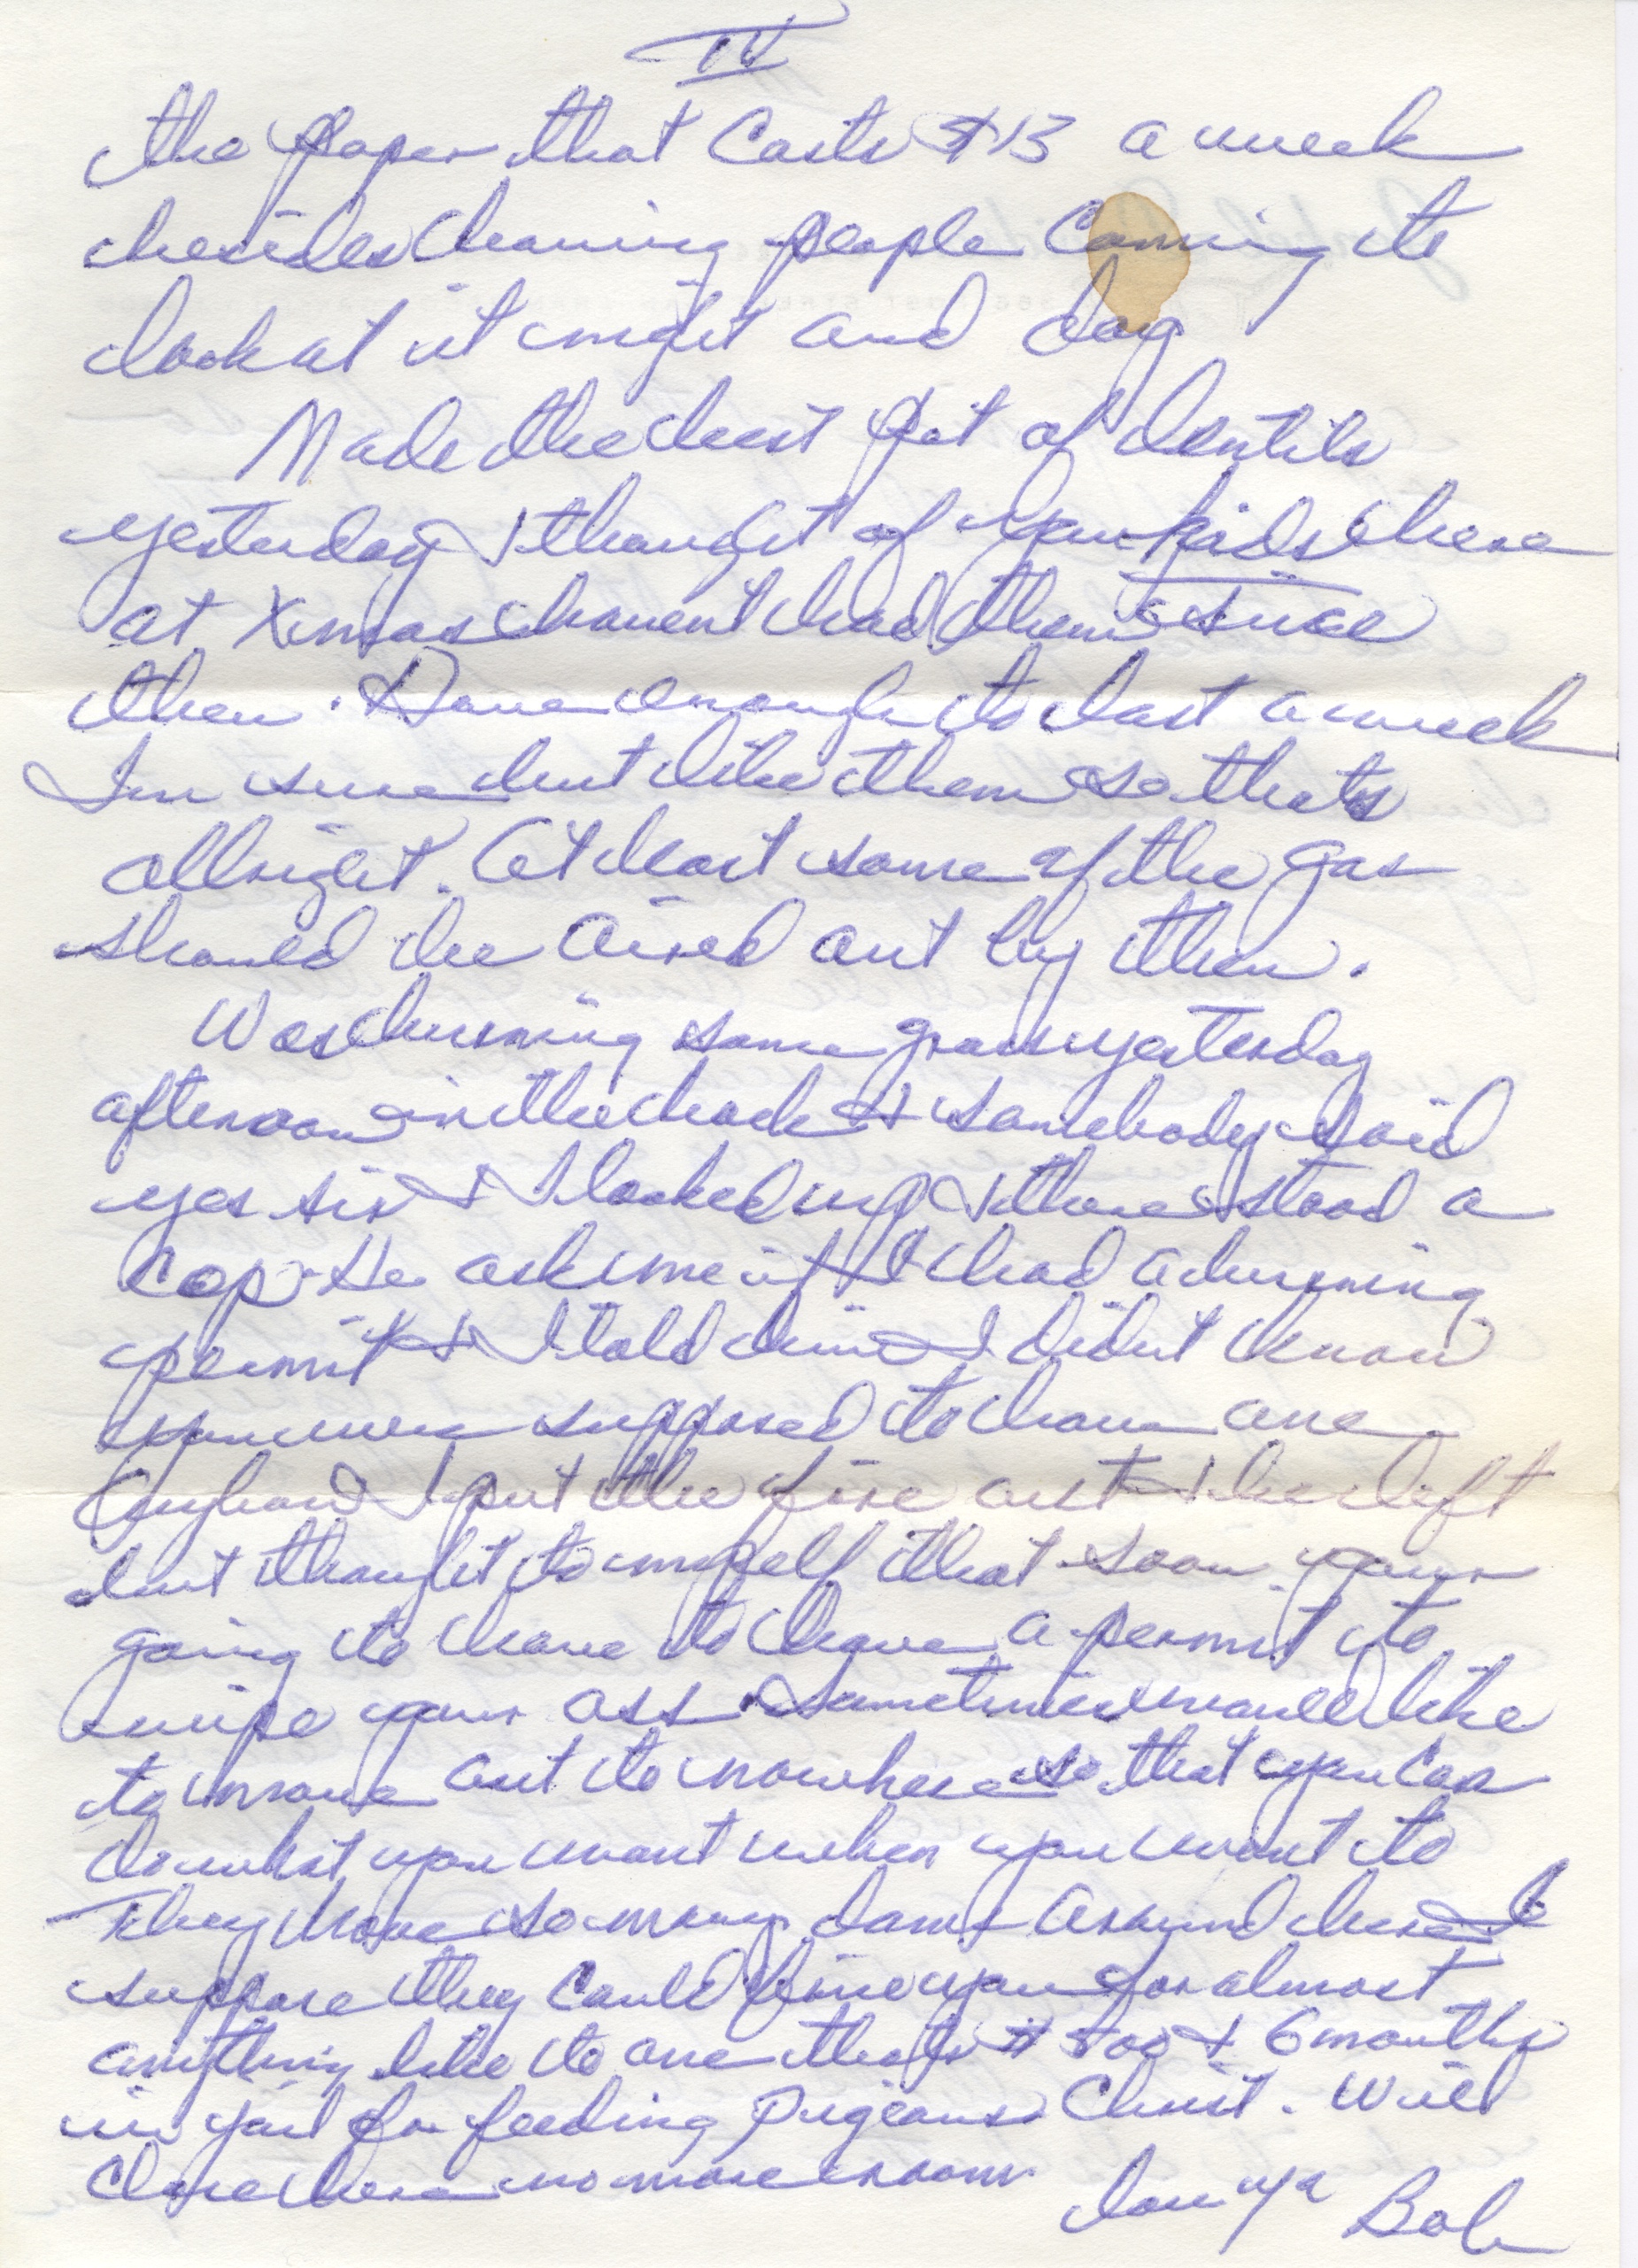 IV
the paper that Costs $13 a week
besides having people Coming to
look at it night and day
Made the best Pot of lentils
yesterday & thought of you kids here
at Xmas havent had them since
then. Have enough to last a week
Im sure but like them so thats
allright. At least some of the gas
should be aired out by then.
Was burning some grass yesterday
afternoon in the back & somebody said
yes sir & I looked up & there stood a
Cop. He ask me if I had a burning
permit & I told him I didnt know
you were supposed to have one.
Anyhow I put the fire out & he left
but thought to myself that soon your
going to have to have a permit to
wipe your ass. Sometimes would like
to move out to nowhere so that you can
do what you want when you want to
They have so many laws around here I
suppose they could fine you for almost
anything like to one thats $500 & 6 months
in jail for feeding Pigeons Christ. Will
Close here no more room.
Love ya Bob